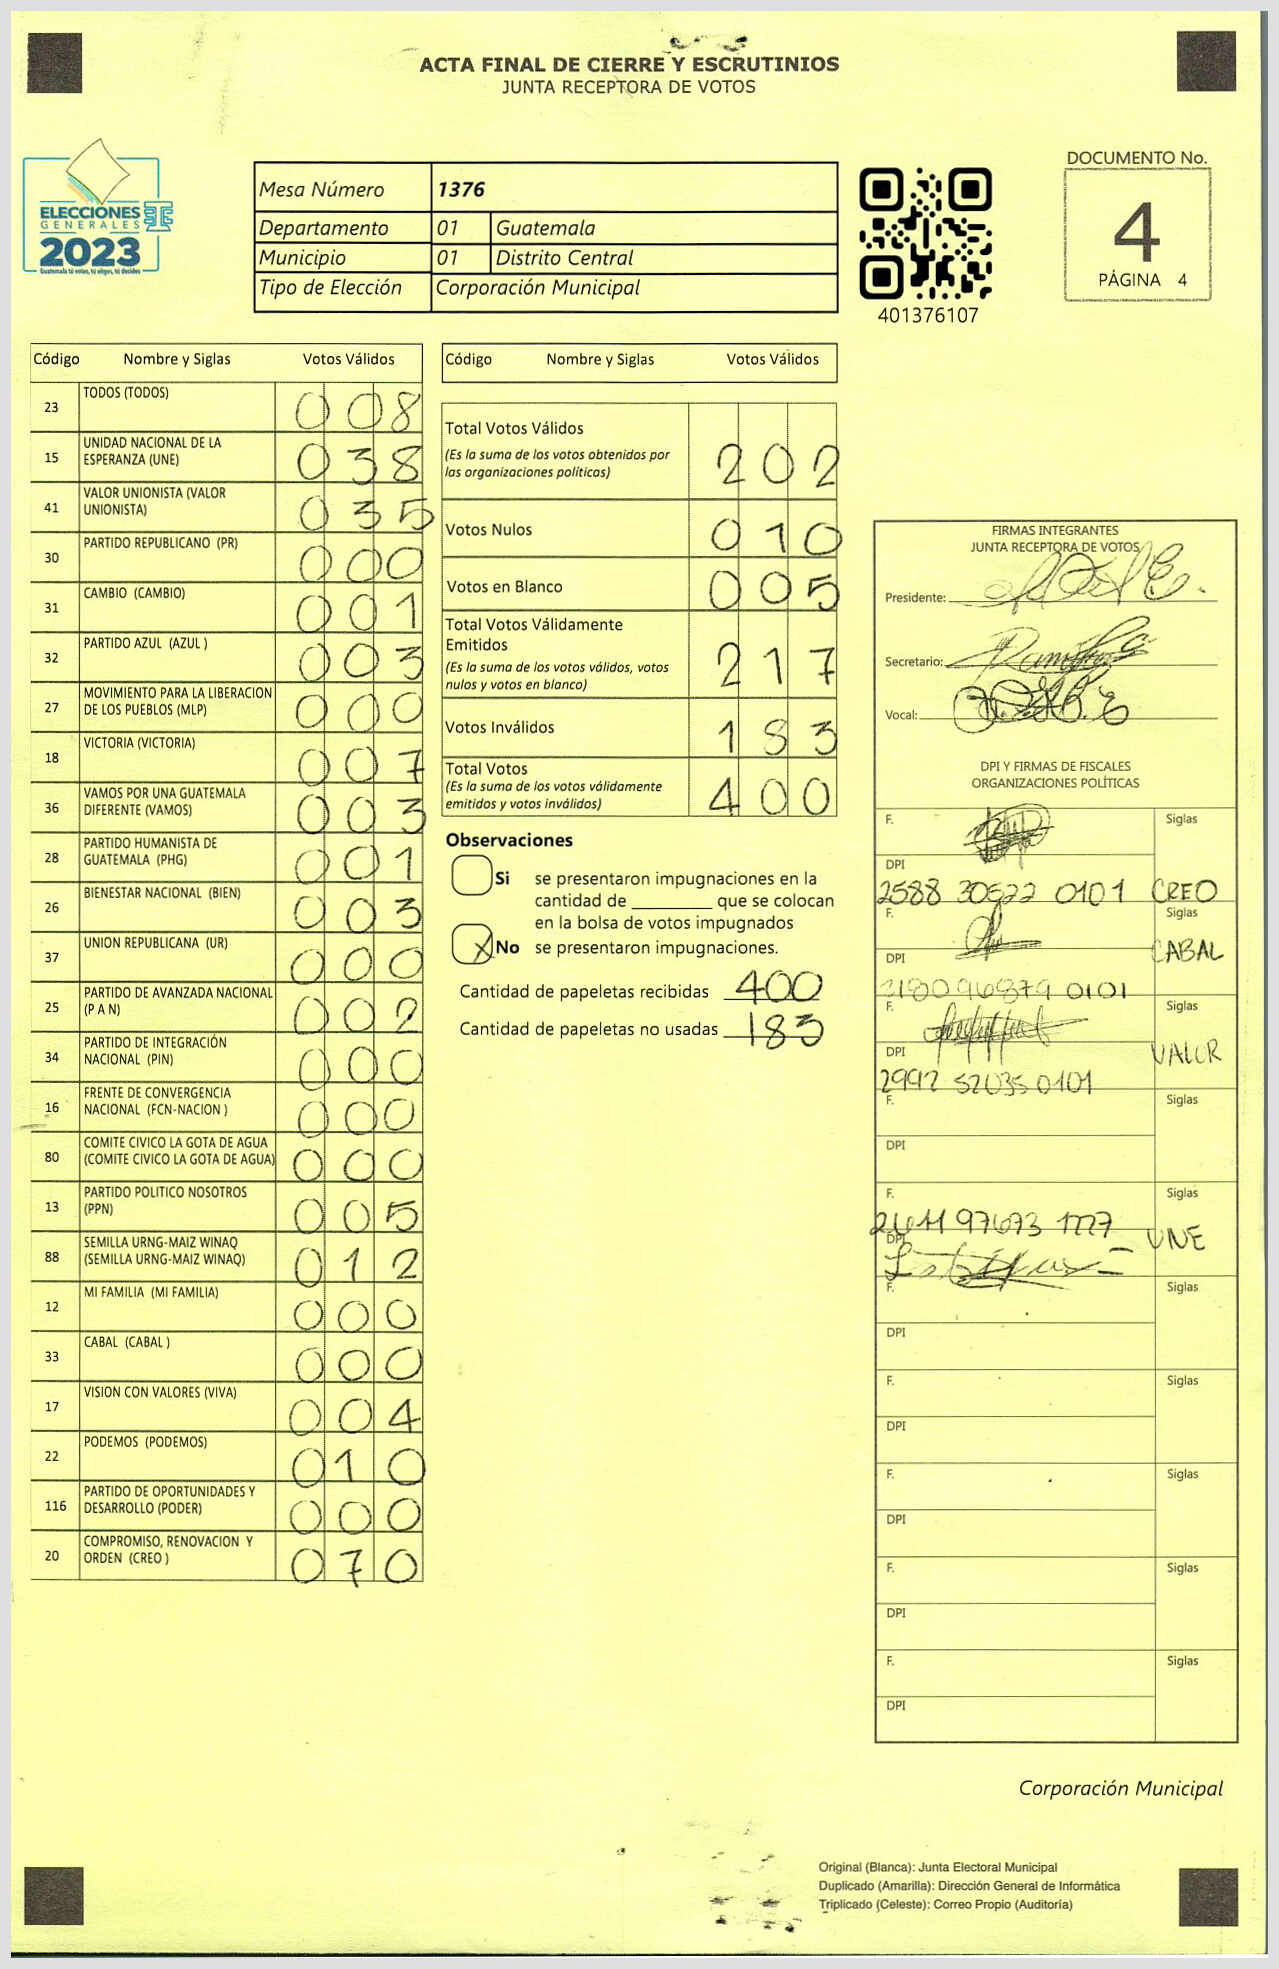 ACTA FINAL DE CIERRE Y ESCRUTINIOS
JUNTA RECEPTORA DE VOTOS
ELECCIONES
GENERALES
2023
Guatemala tú votas, tú eliges, tú decides
Mesa Número 1376
Departamento 01 Guatemala
Municipio 01 Distrito Central
Tipo de Elección Corporación Municipal
401376107
DOCUMENTO No.
4
PÁGINA 4
Código Nombre y Siglas Votos Válidos
23 TODOS (TODOS) 008
15 UNIDAD NACIONAL DE LA
ESPERANZA (UNE) 038
41 VALOR UNIONISTA (VALOR
UNIONISTA) 035
30 PARTIDO REPUBLICANO (PR) 000
31 CAMBIO (CAMBIO) 001
32 PARTIDO AZUL (AZUL ) 003
27 MOVIMIENTO PARA LA LIBERACION
DE LOS PUEBLOS (MLP) 000
18 VICTORIA (VICTORIA) 007
36 VAMOS POR UNA GUATEMALA
DIFERENTE (VAMOS) 003
28 PARTIDO HUMANISTA DE
GUATEMALA (PHG) 001
26 BIENESTAR NACIONAL (BIEN) 003
37 UNION REPUBLICANA (UR) 000
25 PARTIDO DE AVANZADA NACIONAL
(P A N) 002
34 PARTIDO DE INTEGRACIÓN
NACIONAL (PIN) 000
16 FRENTE DE CONVERGENCIA
NACIONAL (FCN-NACION ) 000
80 COMITE CIVICO LA GOTA DE AGUA
(COMITE CIVICO LA GOTA DE AGUA) 000
13 PARTIDO POLITICO NOSOTROS
(PPN) 005
88 SEMILLA URNG-MAIZ WINAQ
(SEMILLA URNG-MAIZ WINAQ) 012
12 MI FAMILIA (MI FAMILIA) 000
33 CABAL (CABAL ) 000
17 VISION CON VALORES (VIVA) 004
22 PODEMOS (PODEMOS) 010
116 PARTIDO DE OPORTUNIDADES Y
DESARROLLO (PODER) 000
20 COMPROMISO, RENOVACION Y
ORDEN (CREO ) 070
Código Nombre y Siglas Votos Válidos
Total Votos Válidos
(Es la suma de los votos obtenidos por
las organizaciones políticas) 202
Votos Nulos 010
Votos en Blanco 005
Total Votos Válidamente
Emitidos
(Es la suma de los votos válidos, votos
nulos y votos en blanco) 217
Votos Inválidos 183
Total Votos
(Es la suma de los votos válidamente
emitidos y votos inválidos) 400
Observaciones
Si se presentaron impugnaciones en la
cantidad de ________ que se colocan
en la bolsa de votos impugnados
X No se presentaron impugnaciones.
Cantidad de papeletas recibidas 400
Cantidad de papeletas no usadas 183
FIRMAS INTEGRANTES
JUNTA RECEPTORA DE VOTOS
Presidente:
Secretario:
Vocal:
DPI Y FIRMAS DE FISCALES
ORGANIZACIONES POLÍTICAS
F. Siglas
DPI
2588 30522 0101 CREO
F. Siglas
CABAL
DPI
2180 96879 0101
F. Siglas
VALOR
DPI
2992 52035 0101
F. Siglas
DPI
F. Siglas
DPI UNE
F. Siglas
DPI
F. Siglas
DPI
F. Siglas
DPI
F. Siglas
DPI
F. Siglas
DPI
Corporación Municipal
Original (Blanca): Junta Electoral Municipal
Duplicado (Amarilla): Dirección General de Informática
Triplicado (Celeste): Correo Propio (Auditoría)